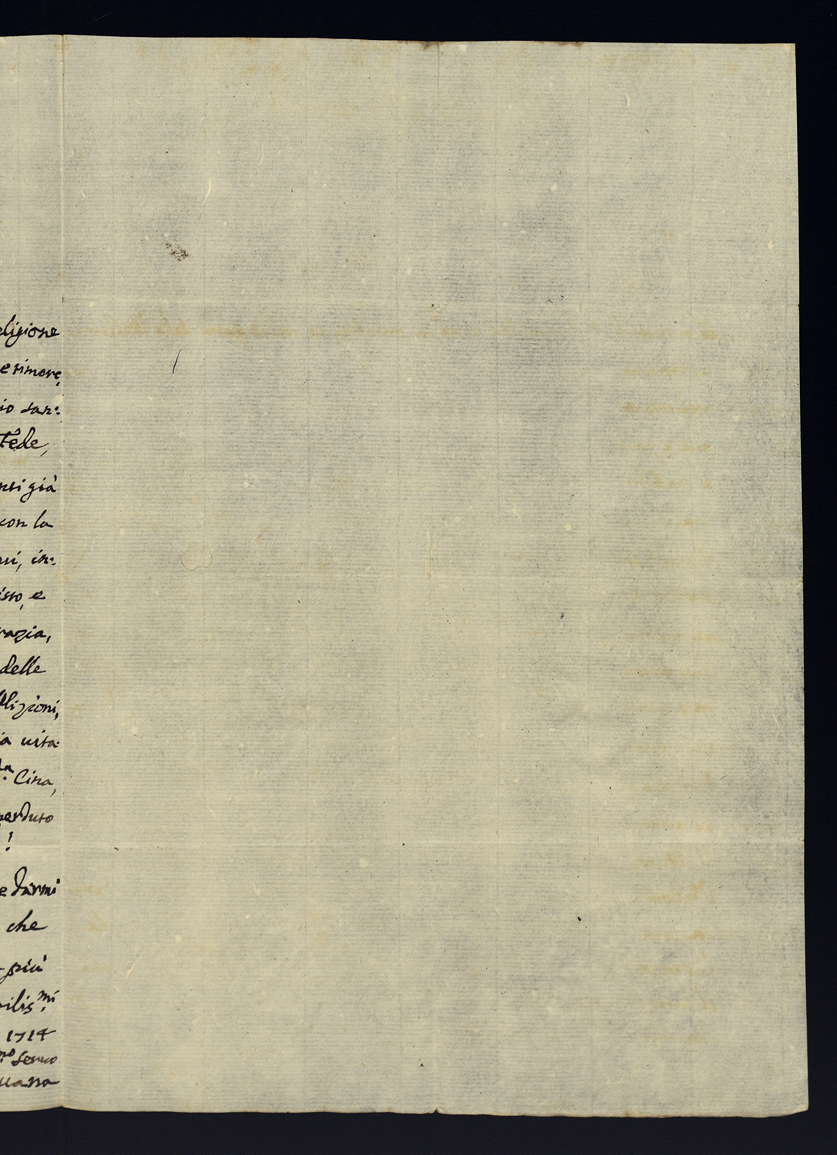 eligione
e timore,
io san:
Fede,
nti già
con la
ni, in:
isto, e
razia,
delle
ligioni,
ia vita
Cina,
perduto
!
e darmi
che
più
ilis.mi
1714
mo Seruo